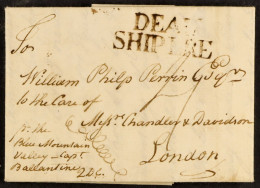 DEAL
SHIP LRE
To
William Philp Perrin Esqr
to the Care of
Messrs Chandler & Davidson
London
pr the
Blue Mountain
Valley Capt
Ballantine